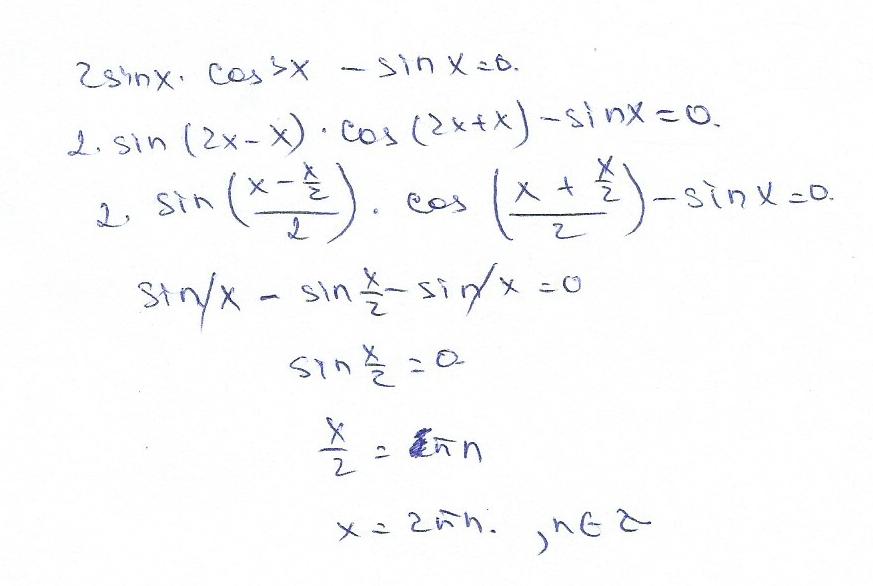 2sinx · cos3x - sinx=0.
2·sin(2x-x)·cos(2x+x)-sinx=0.
2·sin((x-x/2)/2)·cos((x+x/2)/2)-sinx=0.
sinx - sin x/2 - sinx=0
sin x/2 = 0
x/2 = πn
x=2πn. , n∈Z